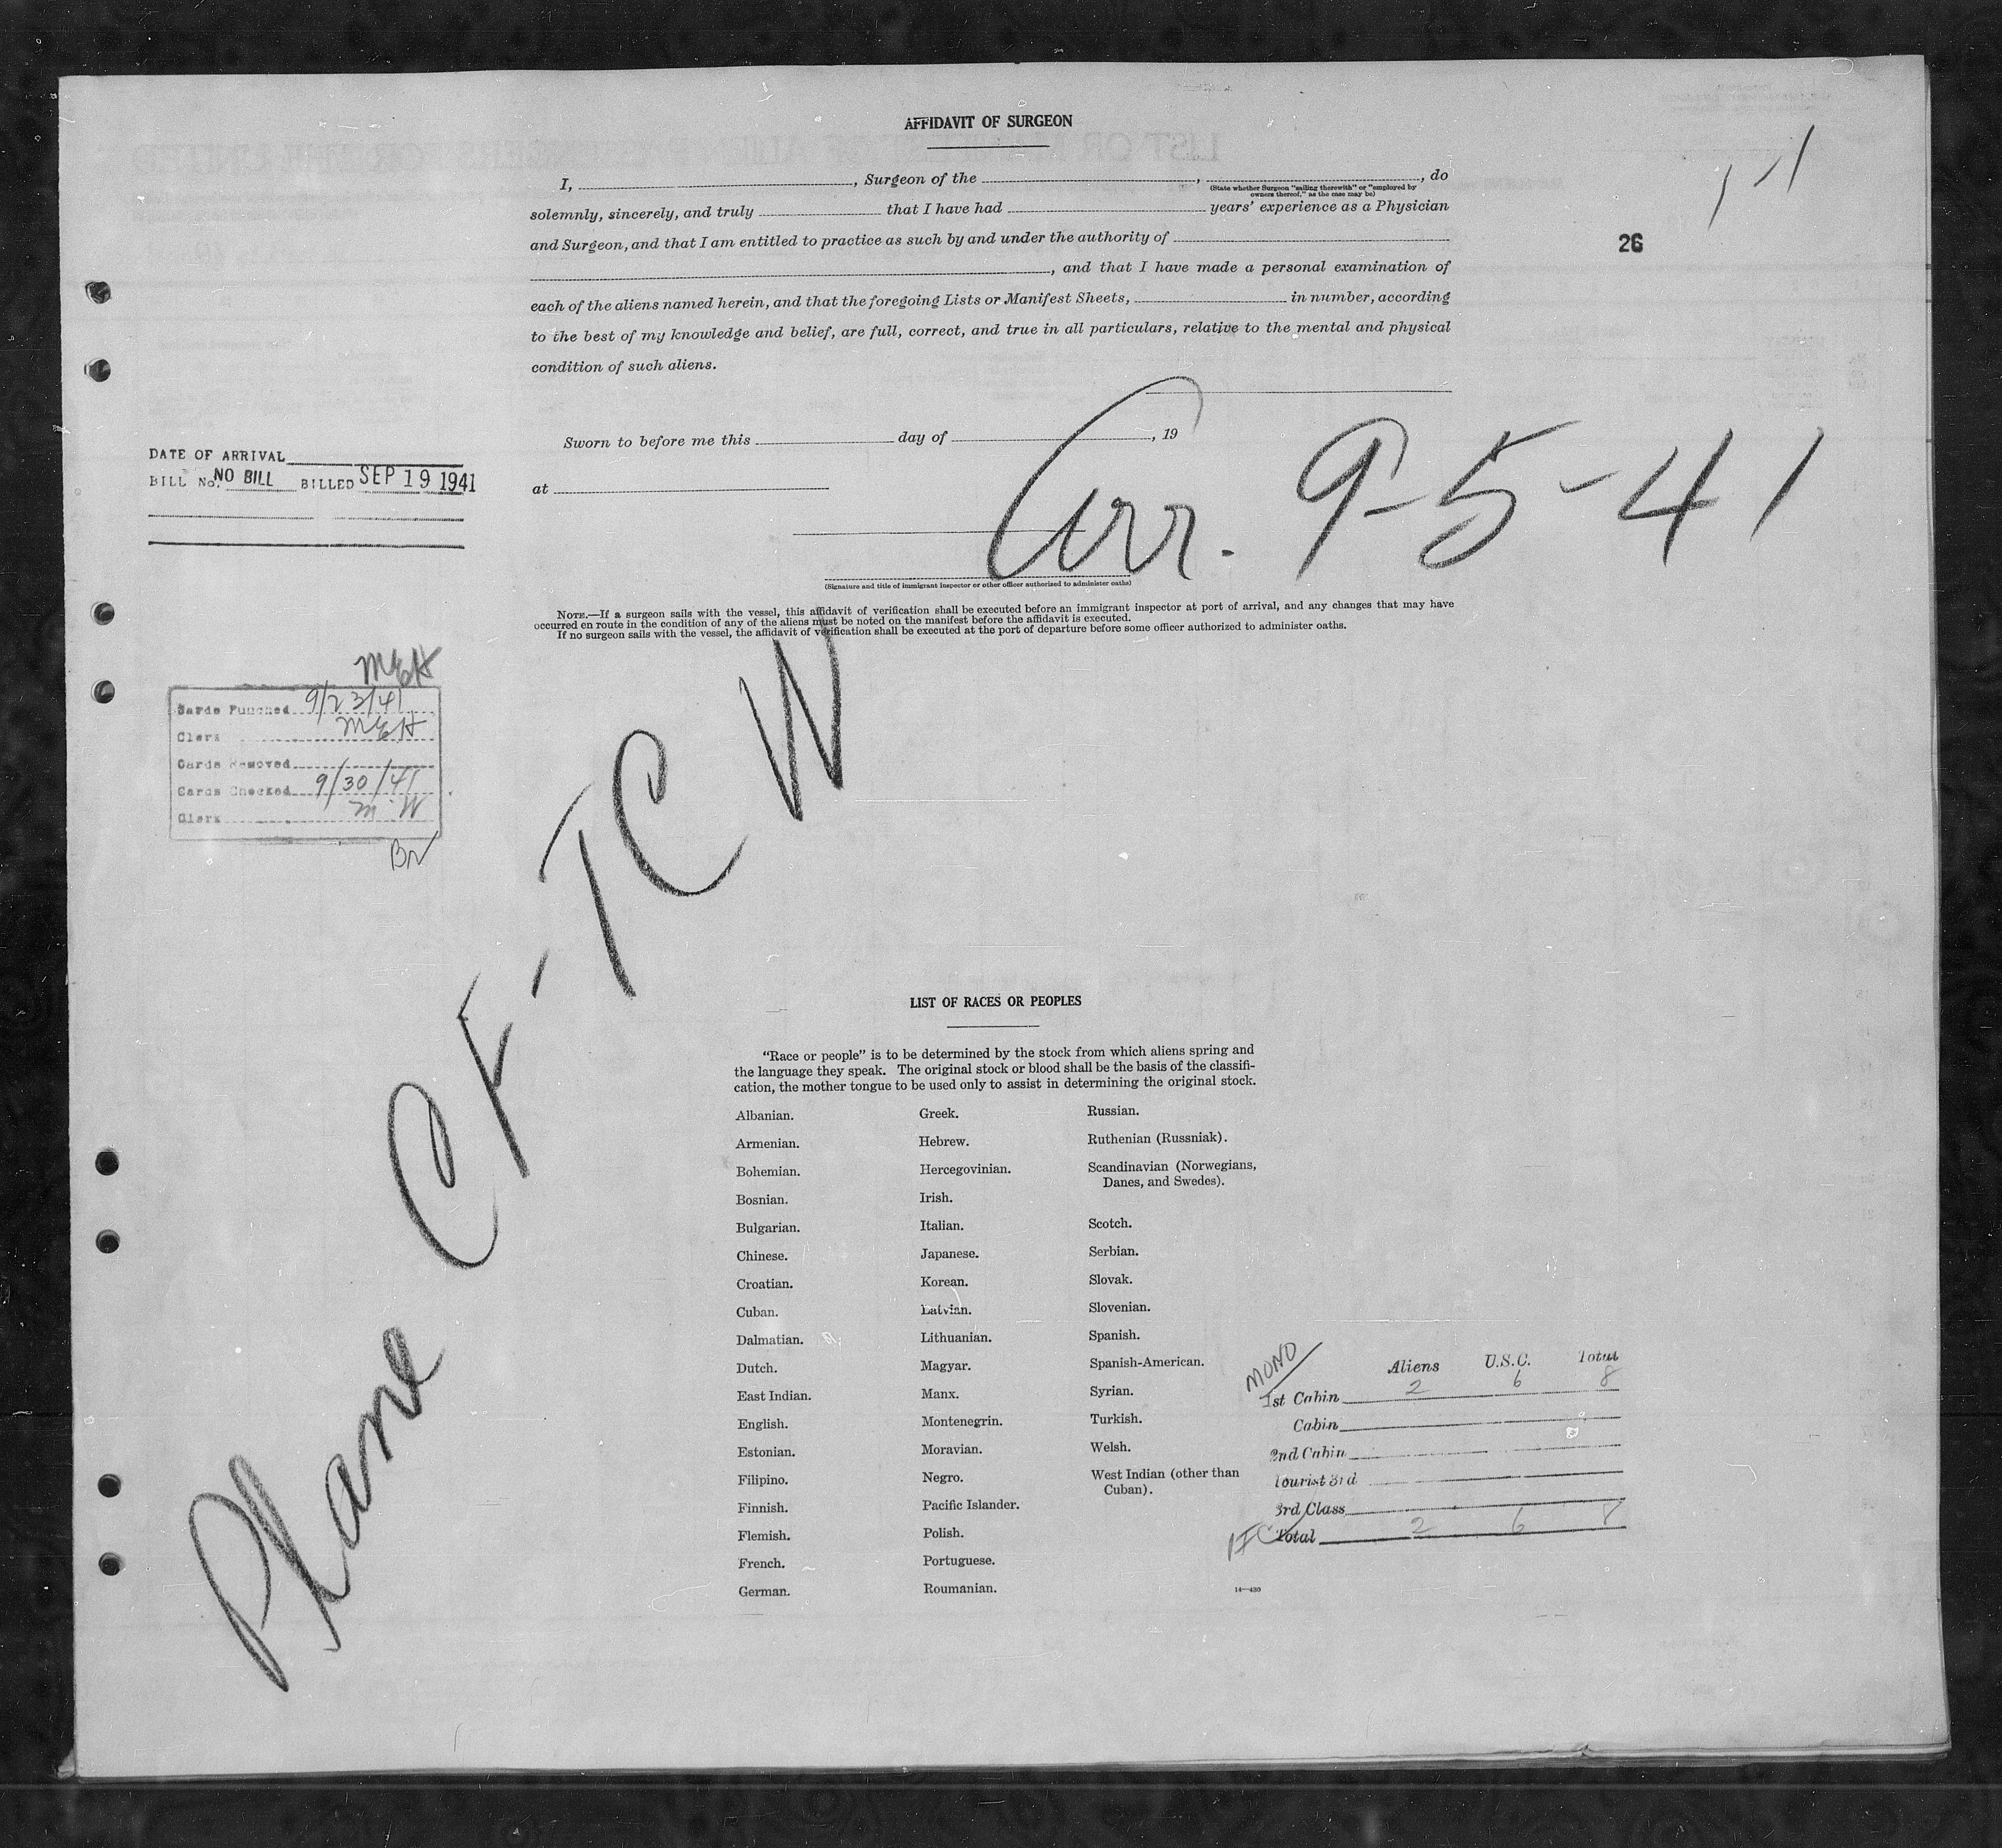 AFFIDAVIT OF SURGEON
1-1
26
I, , Surgeon of the , , do
(State whether Surgeon "sailing therewith" or "employed by
owners thereof," as the case may be)
solemnly, sincerely, and truly that I have had years' experience as a Physician
and Surgeon, and that I am entitled to practice as such by and under the authority of
, and that I have made a personal examination of
each of the aliens named herein, and that the foregoing Lists or Manifest Sheets, in number, according
to the best of my knowledge and belief, are full, correct, and true in all particulars, relative to the mental and physical
condition of such aliens.
Sworn to before me this day of , 19
at
Arr. 9-5-41
(Signature and title of immigrant inspector or other officer authorized to administer oaths)
NOTE.—If a surgeon sails with the vessel, this affidavit of verification shall be executed before an immigrant inspector at port of arrival, and any changes that may have
occurred en route in the condition of any of the aliens must be noted on the manifest before the affidavit is executed.
If no surgeon sails with the vessel, the affidavit of verification shall be executed at the port of departure before some officer authorized to administer oaths.
DATE OF ARRIVAL
BILL No. NO BILL BILLED SEP 19 1941
MEH
Cards Punched 9/23/41
Clerk MEH
Cards Removed
Cards Checked 9/30/41
Clerk M.W
Plane CF-TCW
LIST OF RACES OR PEOPLES
"Race or people" is to be determined by the stock from which aliens spring and
the language they speak. The original stock or blood shall be the basis of the classifi-
cation, the mother tongue to be used only to assist in determining the original stock.
Albanian.
Armenian.
Bohemian.
Bosnian.
Bulgarian.
Chinese.
Croatian.
Cuban.
Dalmatian.
Dutch.
East Indian.
English.
Estonian.
Filipino.
Finnish.
Flemish.
French.
German.
Greek.
Hebrew.
Hercegovinian.
Irish.
Italian.
Japanese.
Korean.
Latvian.
Lithuanian.
Magyar.
Manx.
Montenegrin.
Moravian.
Negro.
Pacific Islander.
Polish.
Portuguese.
Roumanian.
Russian.
Ruthenian (Russniak).
Scandinavian (Norwegians,
Danes, and Swedes).
Scotch.
Serbian.
Slovak.
Slovenian.
Spanish.
Spanish-American.
Syrian.
Turkish.
Welsh.
West Indian (other than
Cuban).
MONO
Aliens U.S.C. Total
1st Cabin 2 6 8
Cabin
2nd Cabin
Tourist 3rd
3rd Class
Total 2 6 8
14—430